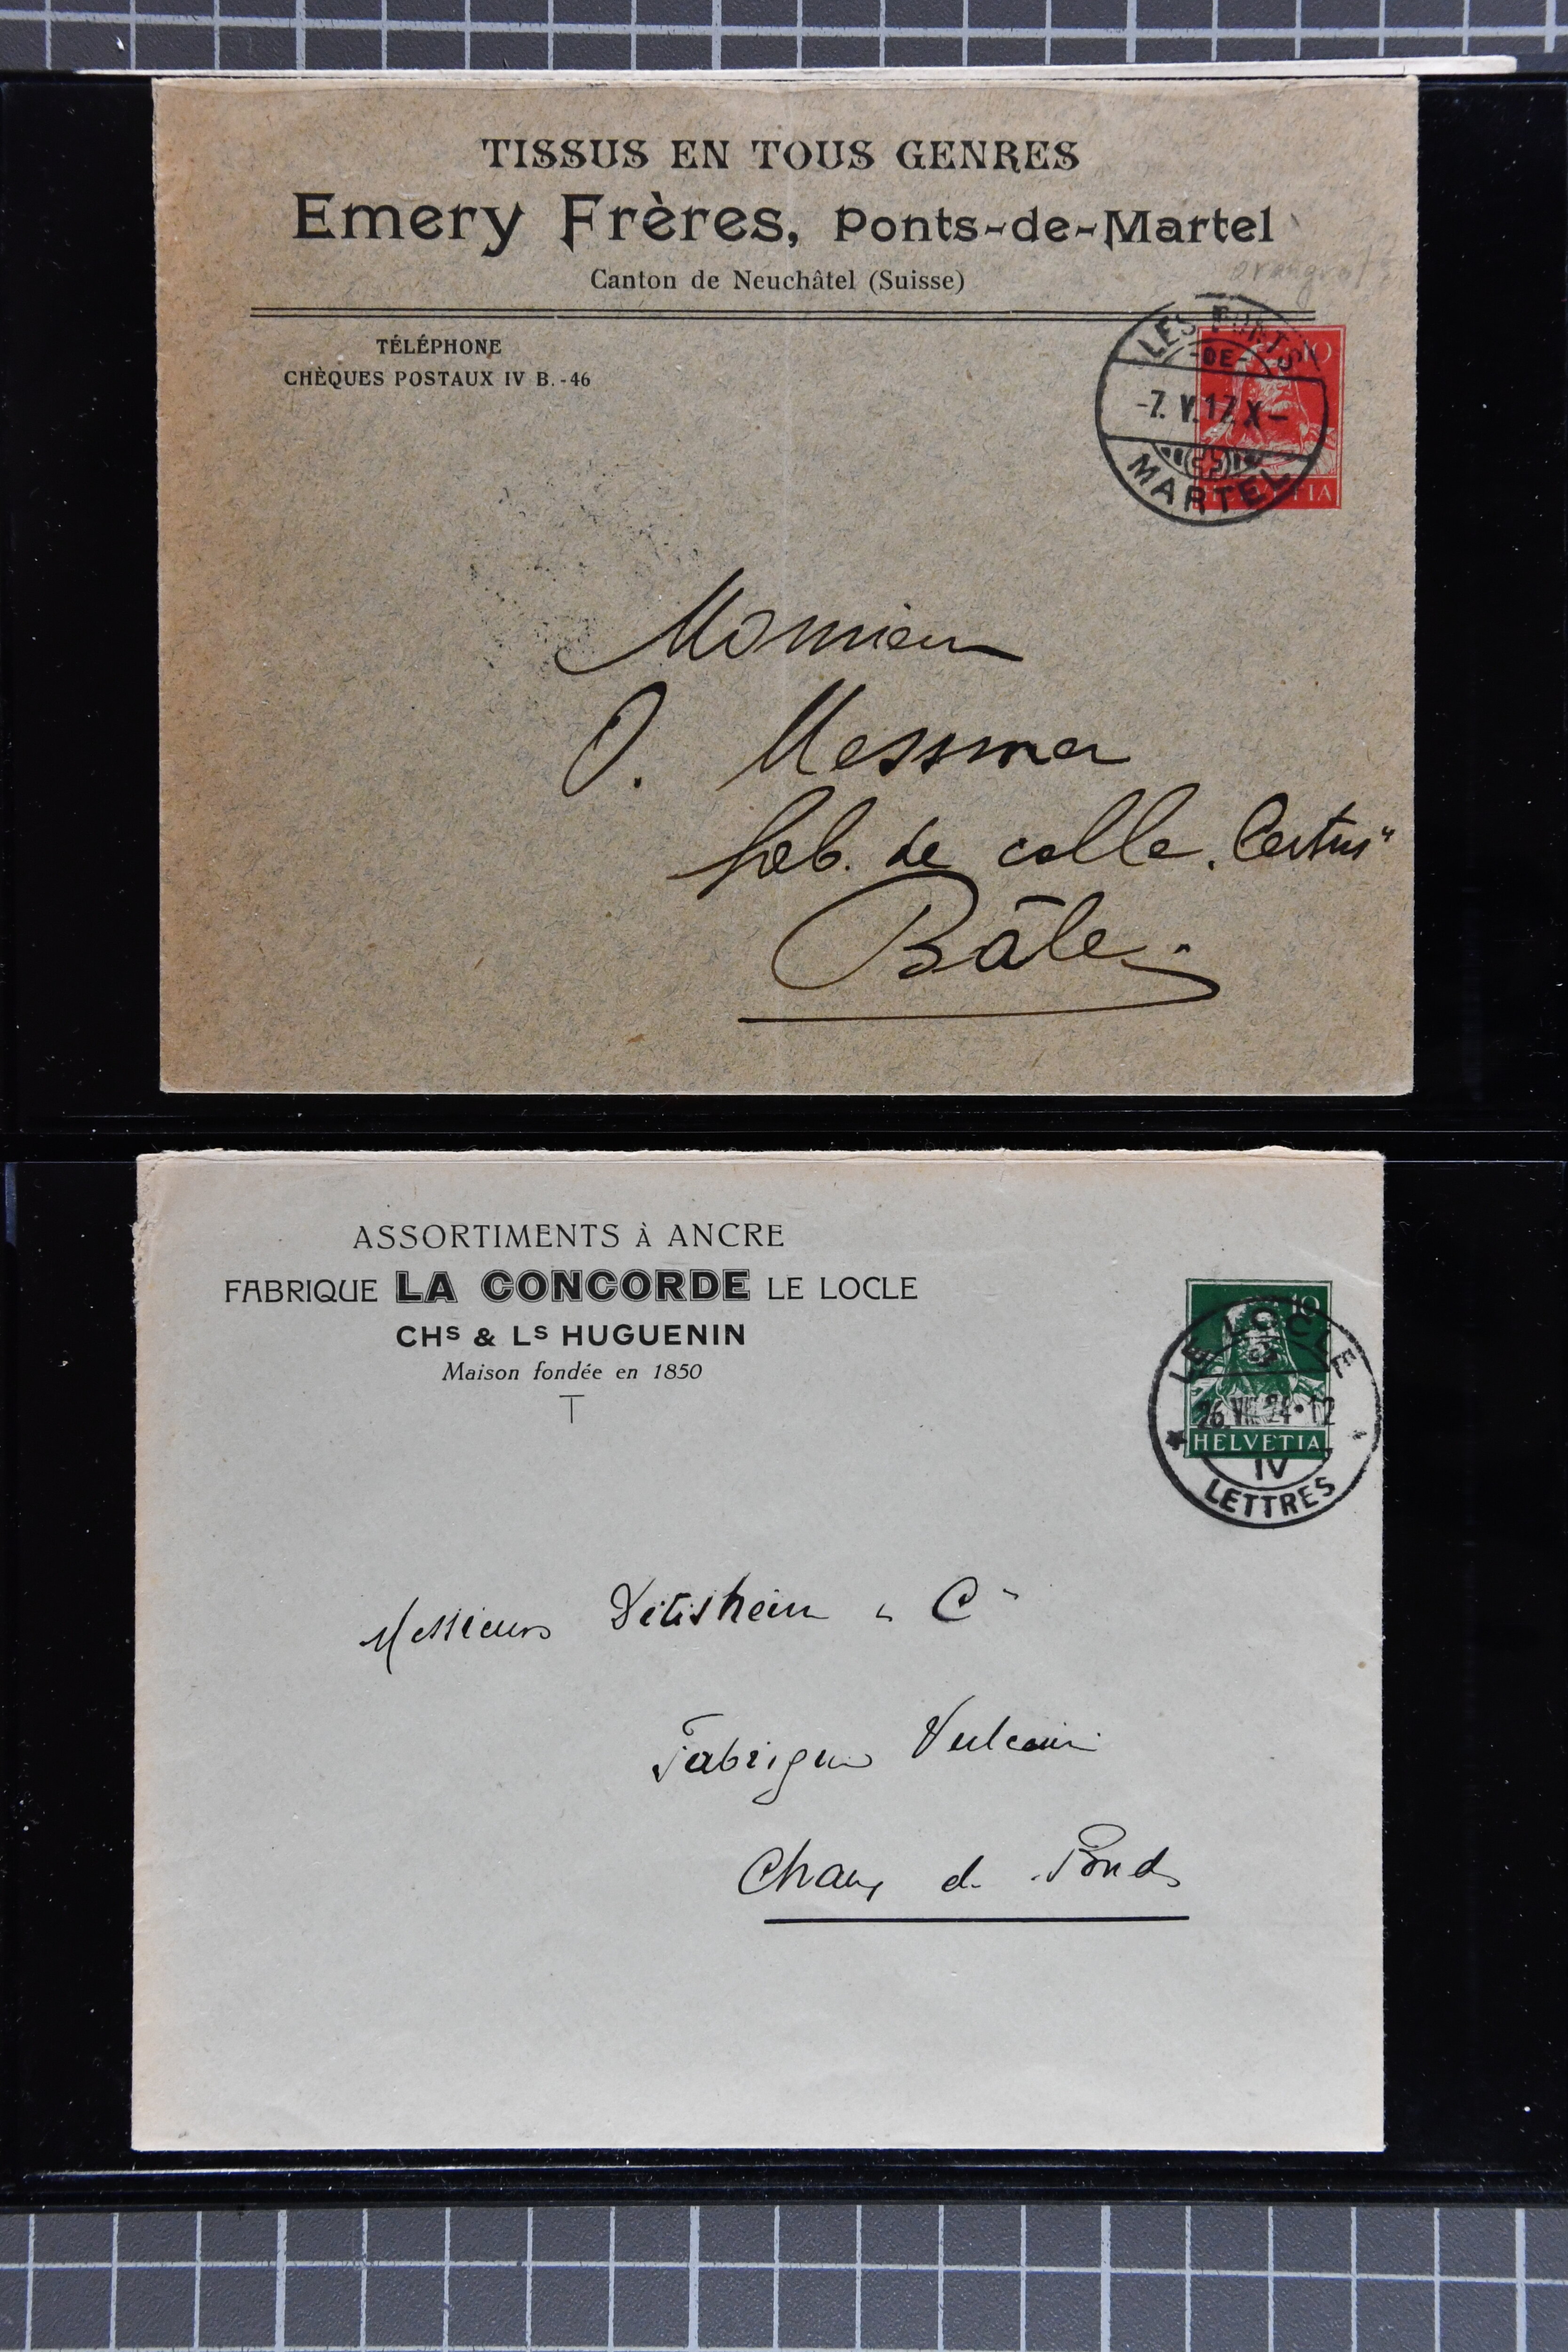 TISSUS EN TOUS GENRES
Emery Frères, Ponts-de-Martel
Canton de Neuchâtel (Suisse)
TÉLÉPHONE
CHÈQUES POSTAUX IV B.-46
LES PONTS
-DE-
-7. V. 17. X-
MARTEL
10
HELVETIA
Monsieur
O. Messmer
fab. de colle "Certus"
Bâle.
ASSORTIMENTS À ANCRE
FABRIQUE LA CONCORDE LE LOCLE
CHS & LS HUGUENIN
Maison fondée en 1850
10
LE LOCLE
26. VIII. 24·12
HELVETIA
IV
LETTRES
Messieurs Ditisheim & Cie
Fabrique Vulcain
Chaux d. Fonds